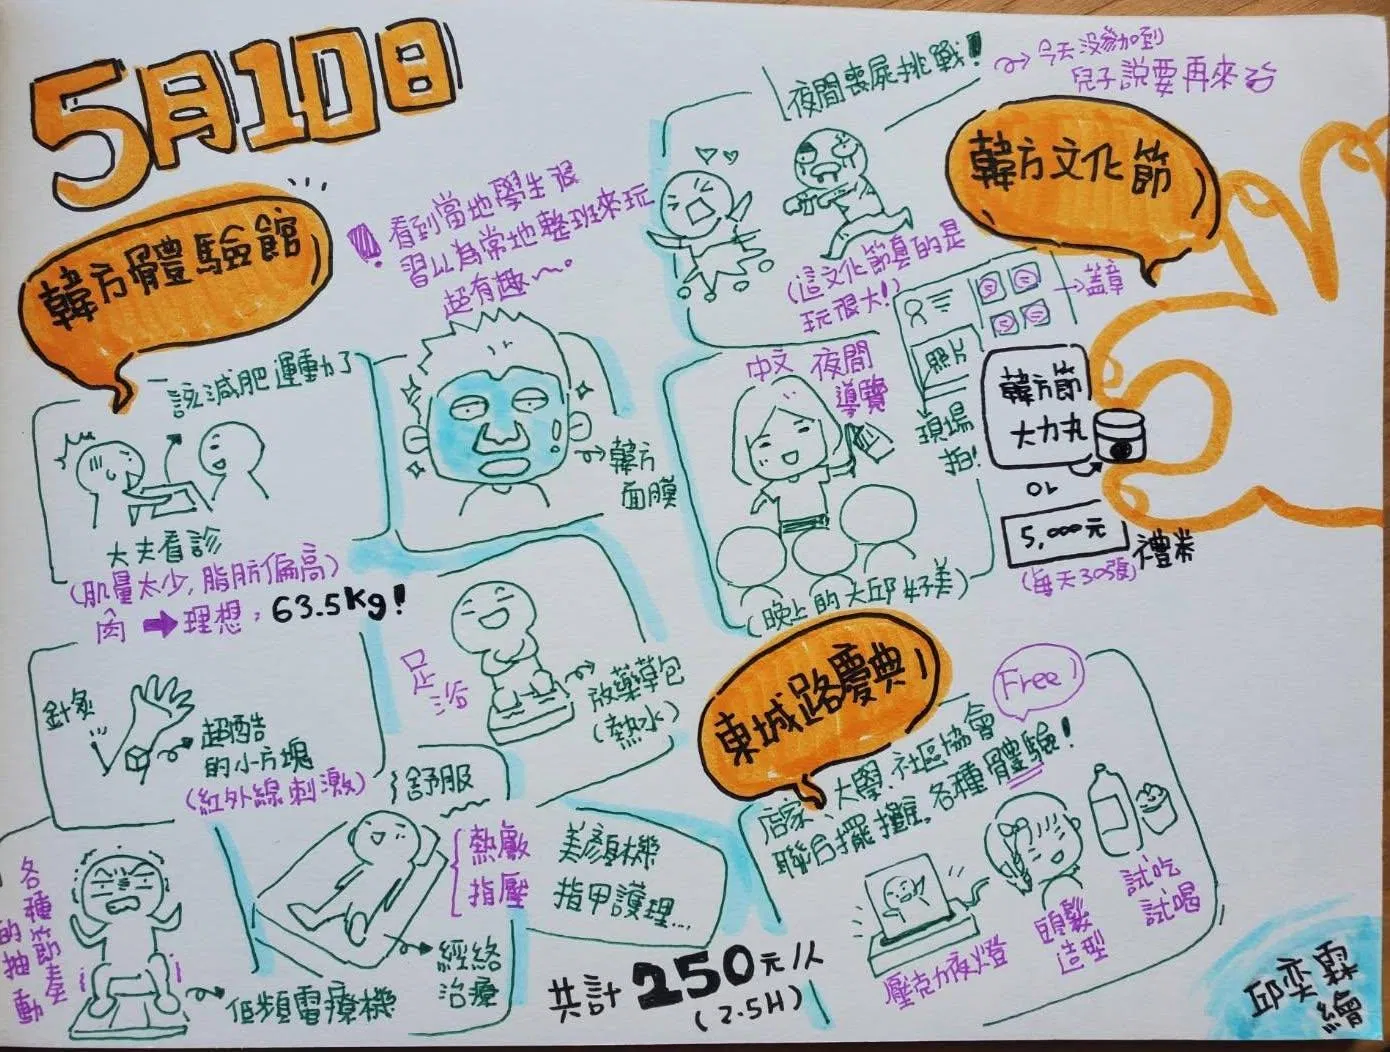 5月10日
韓方體驗館
看到當地學生很
習以為常地整班來玩
超有趣～。
該減肥運動了
大夫看診
(肌量太少,脂肪偏高)
肉➡理想:63.5kg!
韓方
面膜
針灸
超酷
的小方塊
(紅外線刺激)
足浴
放藥草包
(熱水)
舒服
熱敷
指壓
美顏機
指甲護理...
各種節奏
的抽動
低頻電療機
經絡
治療
共計250元/人
(2.5H)
夜間喪屍挑戰!
今天沒參加到
兒子說要再來
韓方文化節
(這文化節真的是
玩很大!)
蓋章
照片
現場
拍!
韓方節
大力丸
or
5,000元
禮券
(每天30張)
中文夜間
導覽
(晚上的大邱好美)
東城路慶典!
Free!
店家、大學.社區協會
聯合擺攤,各種體驗!
壓克力夜燈
頭髮
造型
試吃
試喝
邱奕霖
繪